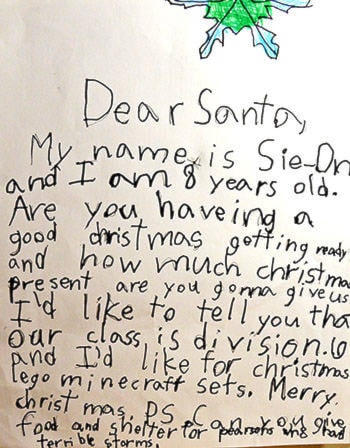 Dear Santa,
My name is Sie-On
and I am 8 years old.
Are you haveing a
good christmas getting ready
and how much christma
present are you gonna give us
I'd like to tell you tha
our class is division.6
and I'd like for christmas
lego minecraft sets. Merry
christ mas. P.S Can you give
food and shelter for who had
terrible storms.